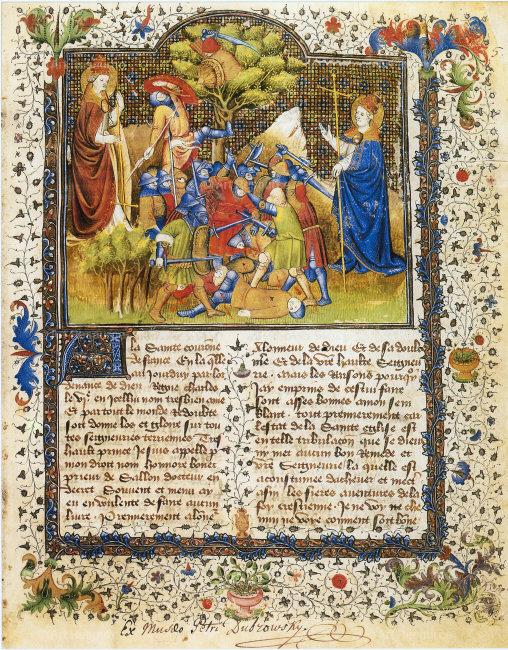 A la Sainte couronne
de france En la q̄lle
au jourduy par lor
denance de dieu Regne charles
le vje. en jcellui nom tresbien ame
Et par tout le monde Redoubte
soit donne los et gloire sur tou
tes seigneuries terriennes Tres
hault prince Je suis appelle p̄
mon droit nom honnore bonet
prieur de Sallon docteur en
decret Souvent et menu ay
eu en voulente de faire aucun
livre. Premierement a lonē
A lonneur de dieu Et de sa doulce
me Et de la vr̄e haulte Seigneu
rie. mais les Raisons pourquoy
jay emprins de cestui faire
sont asses bonnes a mon sem
blant. tout premierement car
lestat de la Sainte eglise est
en telle tribulacion que se dieu
ny met aucun bon Remede
vr̄e Seigneurie la quelle est
acoustumee dachever et mect
a fin les fieres aventures de la
foy crestienne. Je ne voy ne che
min ne voye coment soit bone
Ex Musæo Petri Dubrowsky.